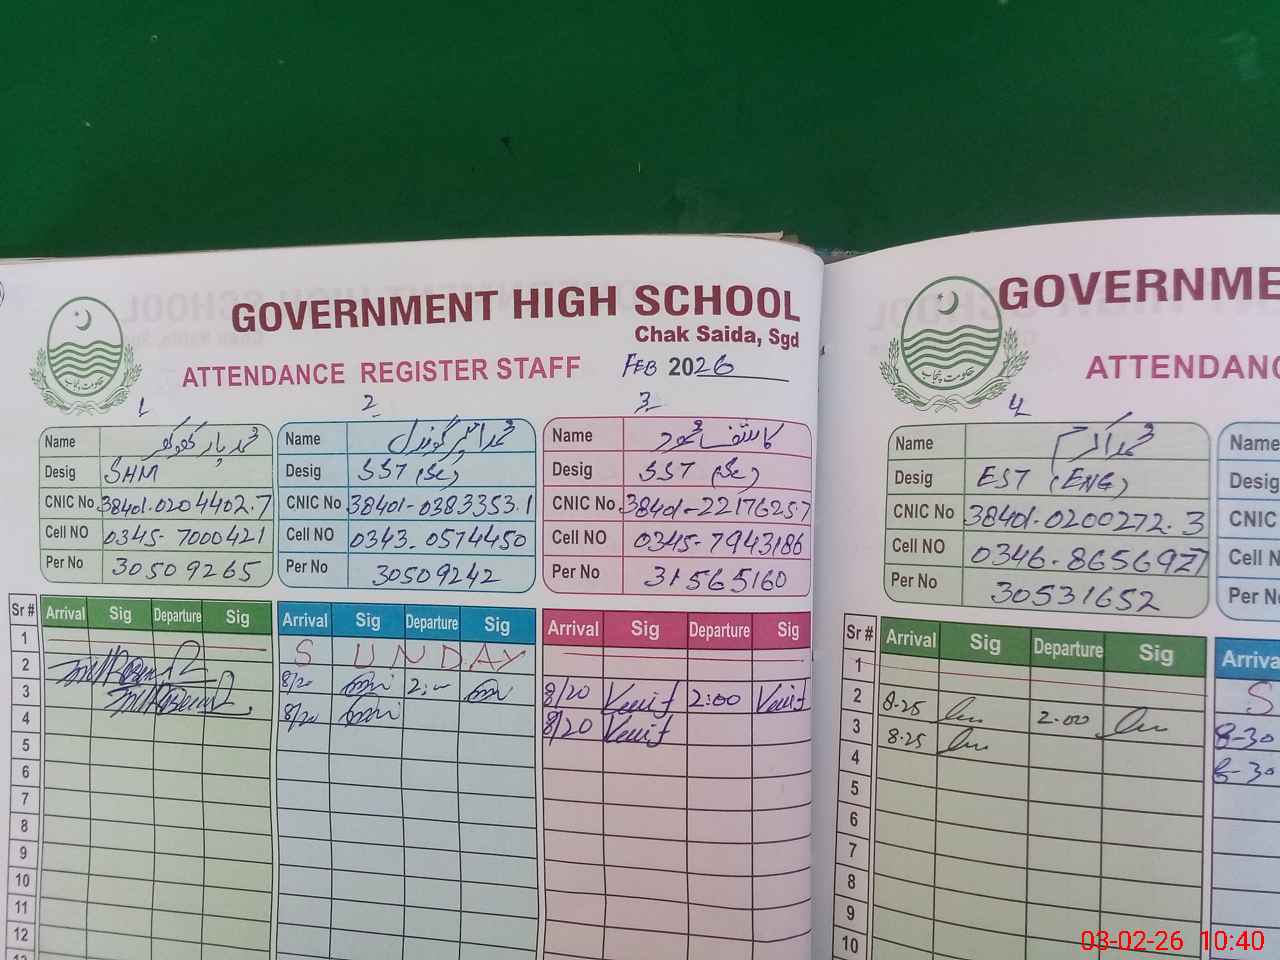 GOVERNMENT HIGH SCHOOL
Chak Saida, Sgd
ATTENDANCE REGISTER STAFF FEB 2026
حکومت پنجاب
1 2 3
Name
Desig SHM
CNIC No 38401-0204402-7
Cell NO 0345-7000421
Per No 30509265
Name محمد گوندل
Desig SST (Sc)
CNIC No 38401-0383353-1
Cell NO 0343-0574450
Per No 30509242
Name کاشف محمود
Desig SST (Sc)
CNIC No 38401-2217625-7
Cell NO 0345-7943186
Per No 31565160
Sr # Arrival Sig Departure Sig Arrival Sig Departure Sig Arrival Sig Departure Sig
1 SUNDAY
2 8/20 2:- 8/20 2:00
3 8/20 8/20
4
5
6
7
8
9
10
11
12
GOVERNME
ATTENDANC
حکومت پنجاب
4
Name محمد اکرم
Desig EST (ENG)
CNIC No 38401-0200272-3
Cell NO 0346-8656927
Per No 30531652
Name
Desig
CNIC
Cell N
Per N
Sr # Arrival Sig Departure Sig Arriva
1 S
2 8-25 2-00 8-30
3 8-25 8-30
4
5
6
7
8
9
10
03-02-26 10:40